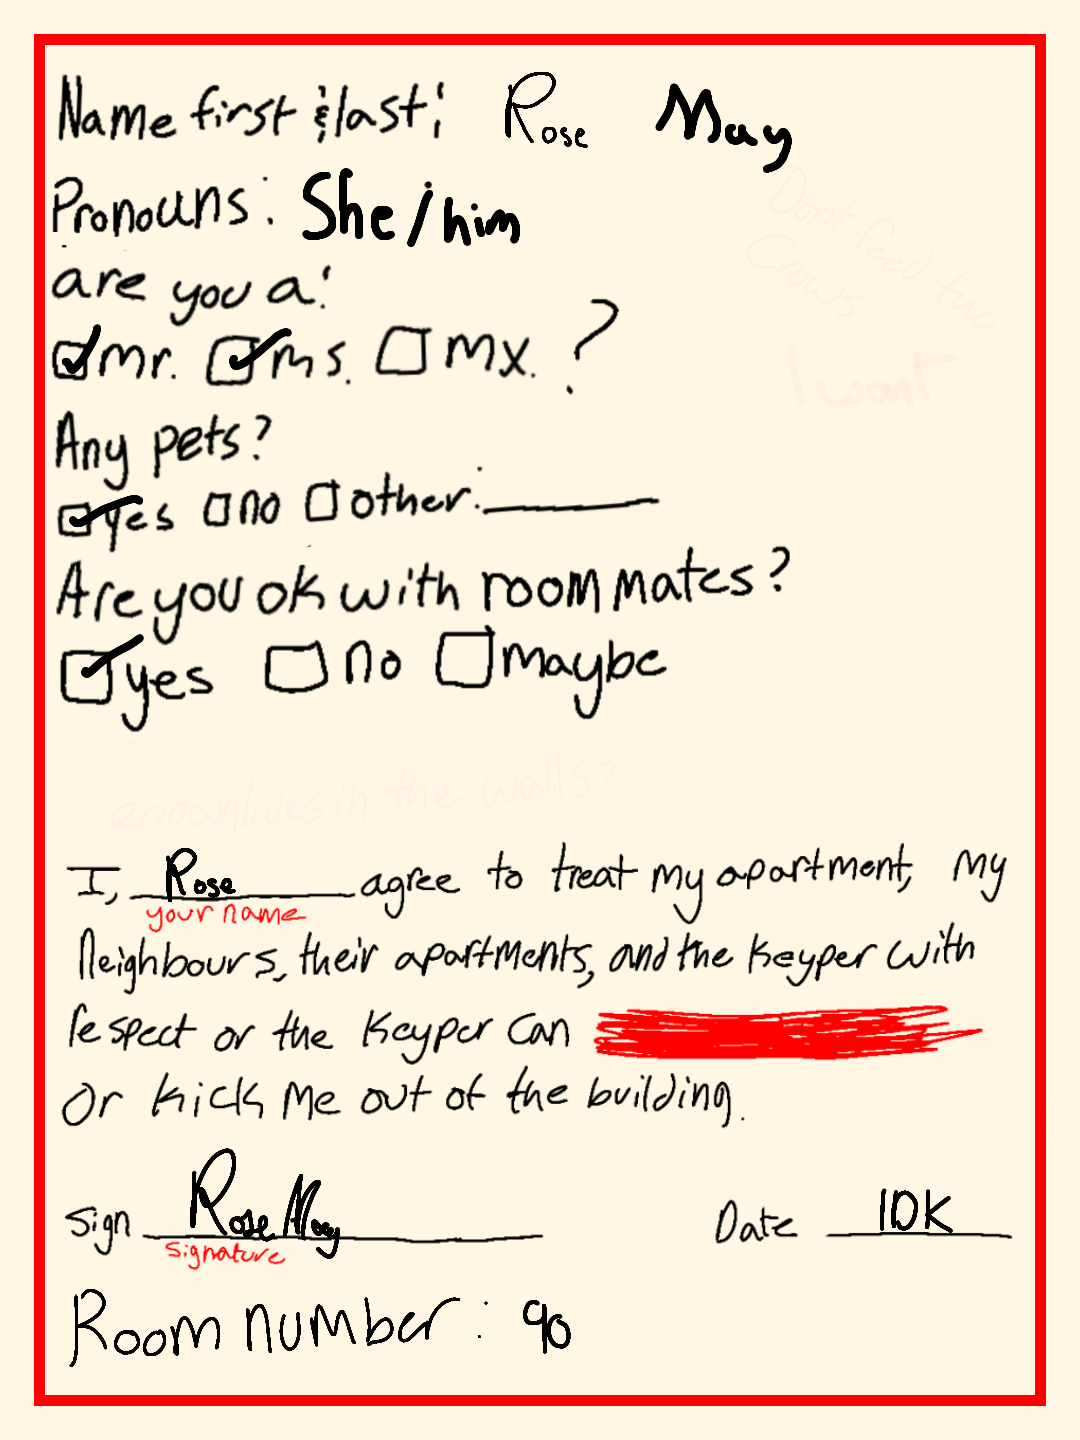 Name first & last: Rose May
Pronouns: She/him
Dont feed the
Crows.
are you a:
mr. ms. mx. ?
I want
Any pets?
yes no other:
Are you ok with roommates?
yes no maybe
lives in the walls?
I, Rose agree to treat my apartment, my
your name
Neighbours, their apartments, and the Keyper with
respect or the Keyper can
or kick me out of the building.
sign Rose May Date IDK
signature
Room number: 90